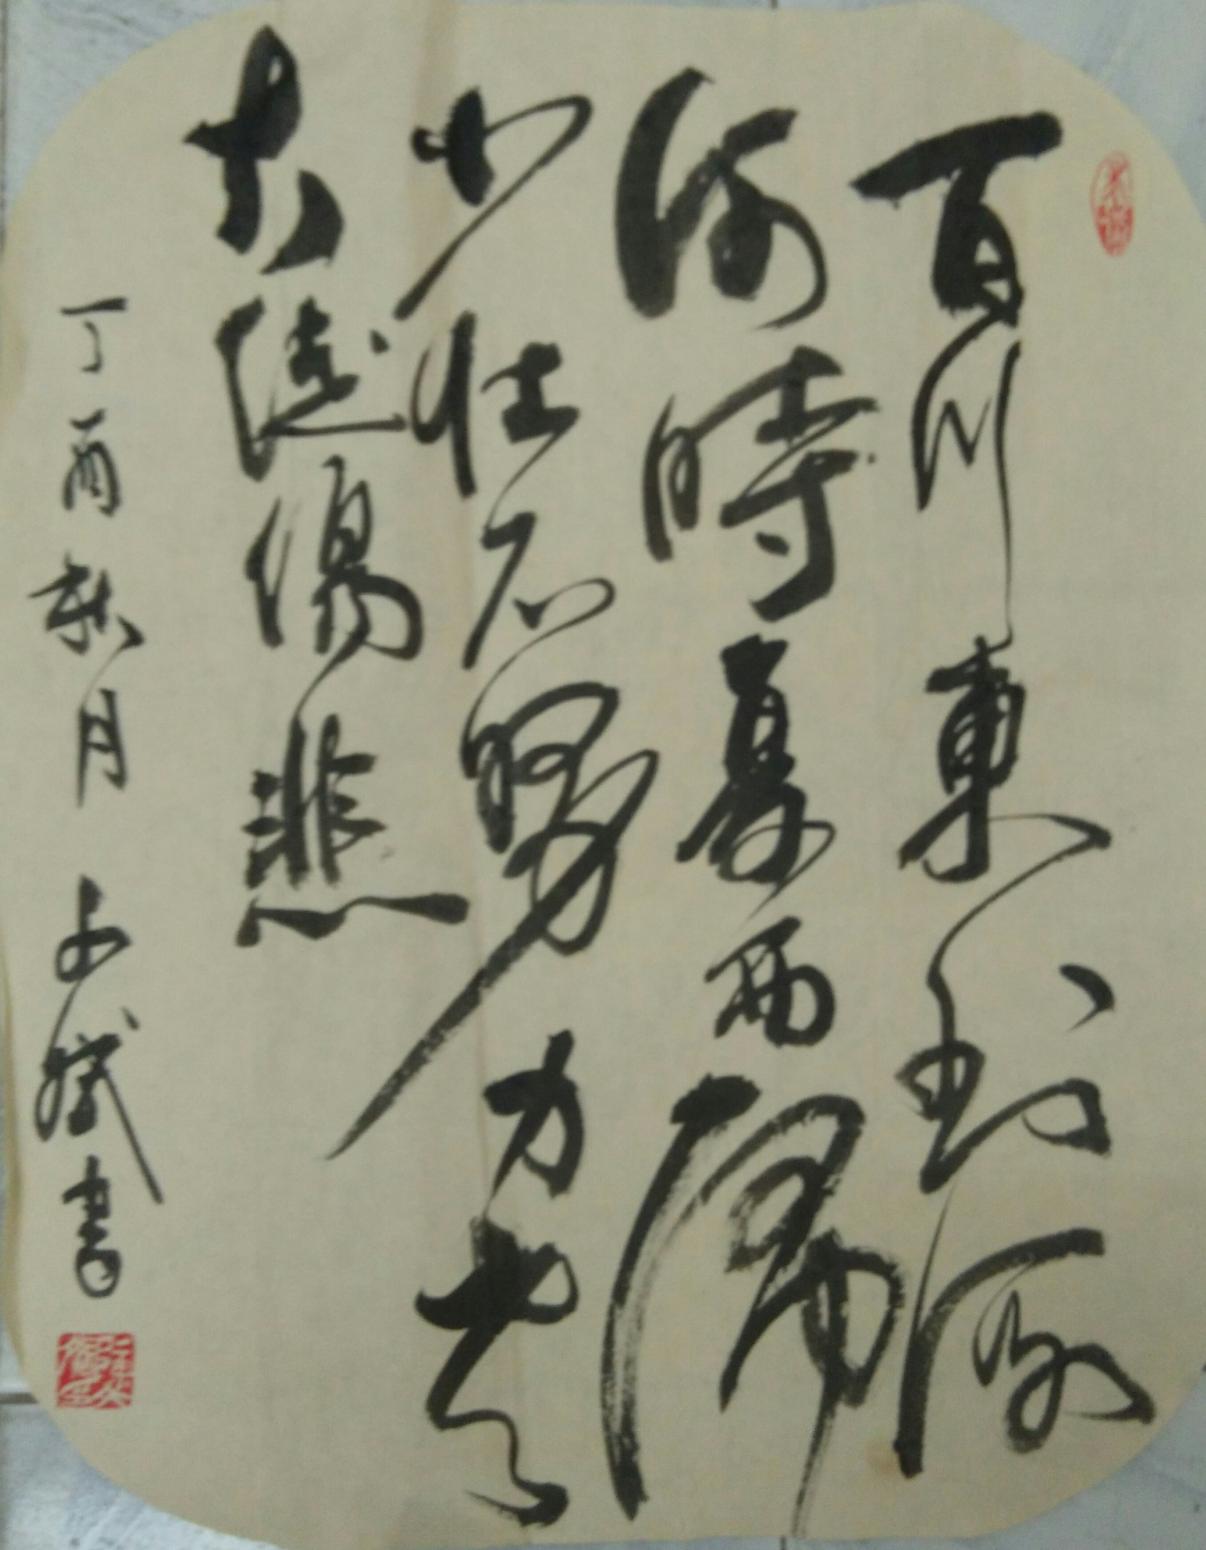 百川東到海
何時复西歸
少壮不努力老
大徒傷悲
丁酉秋月 書